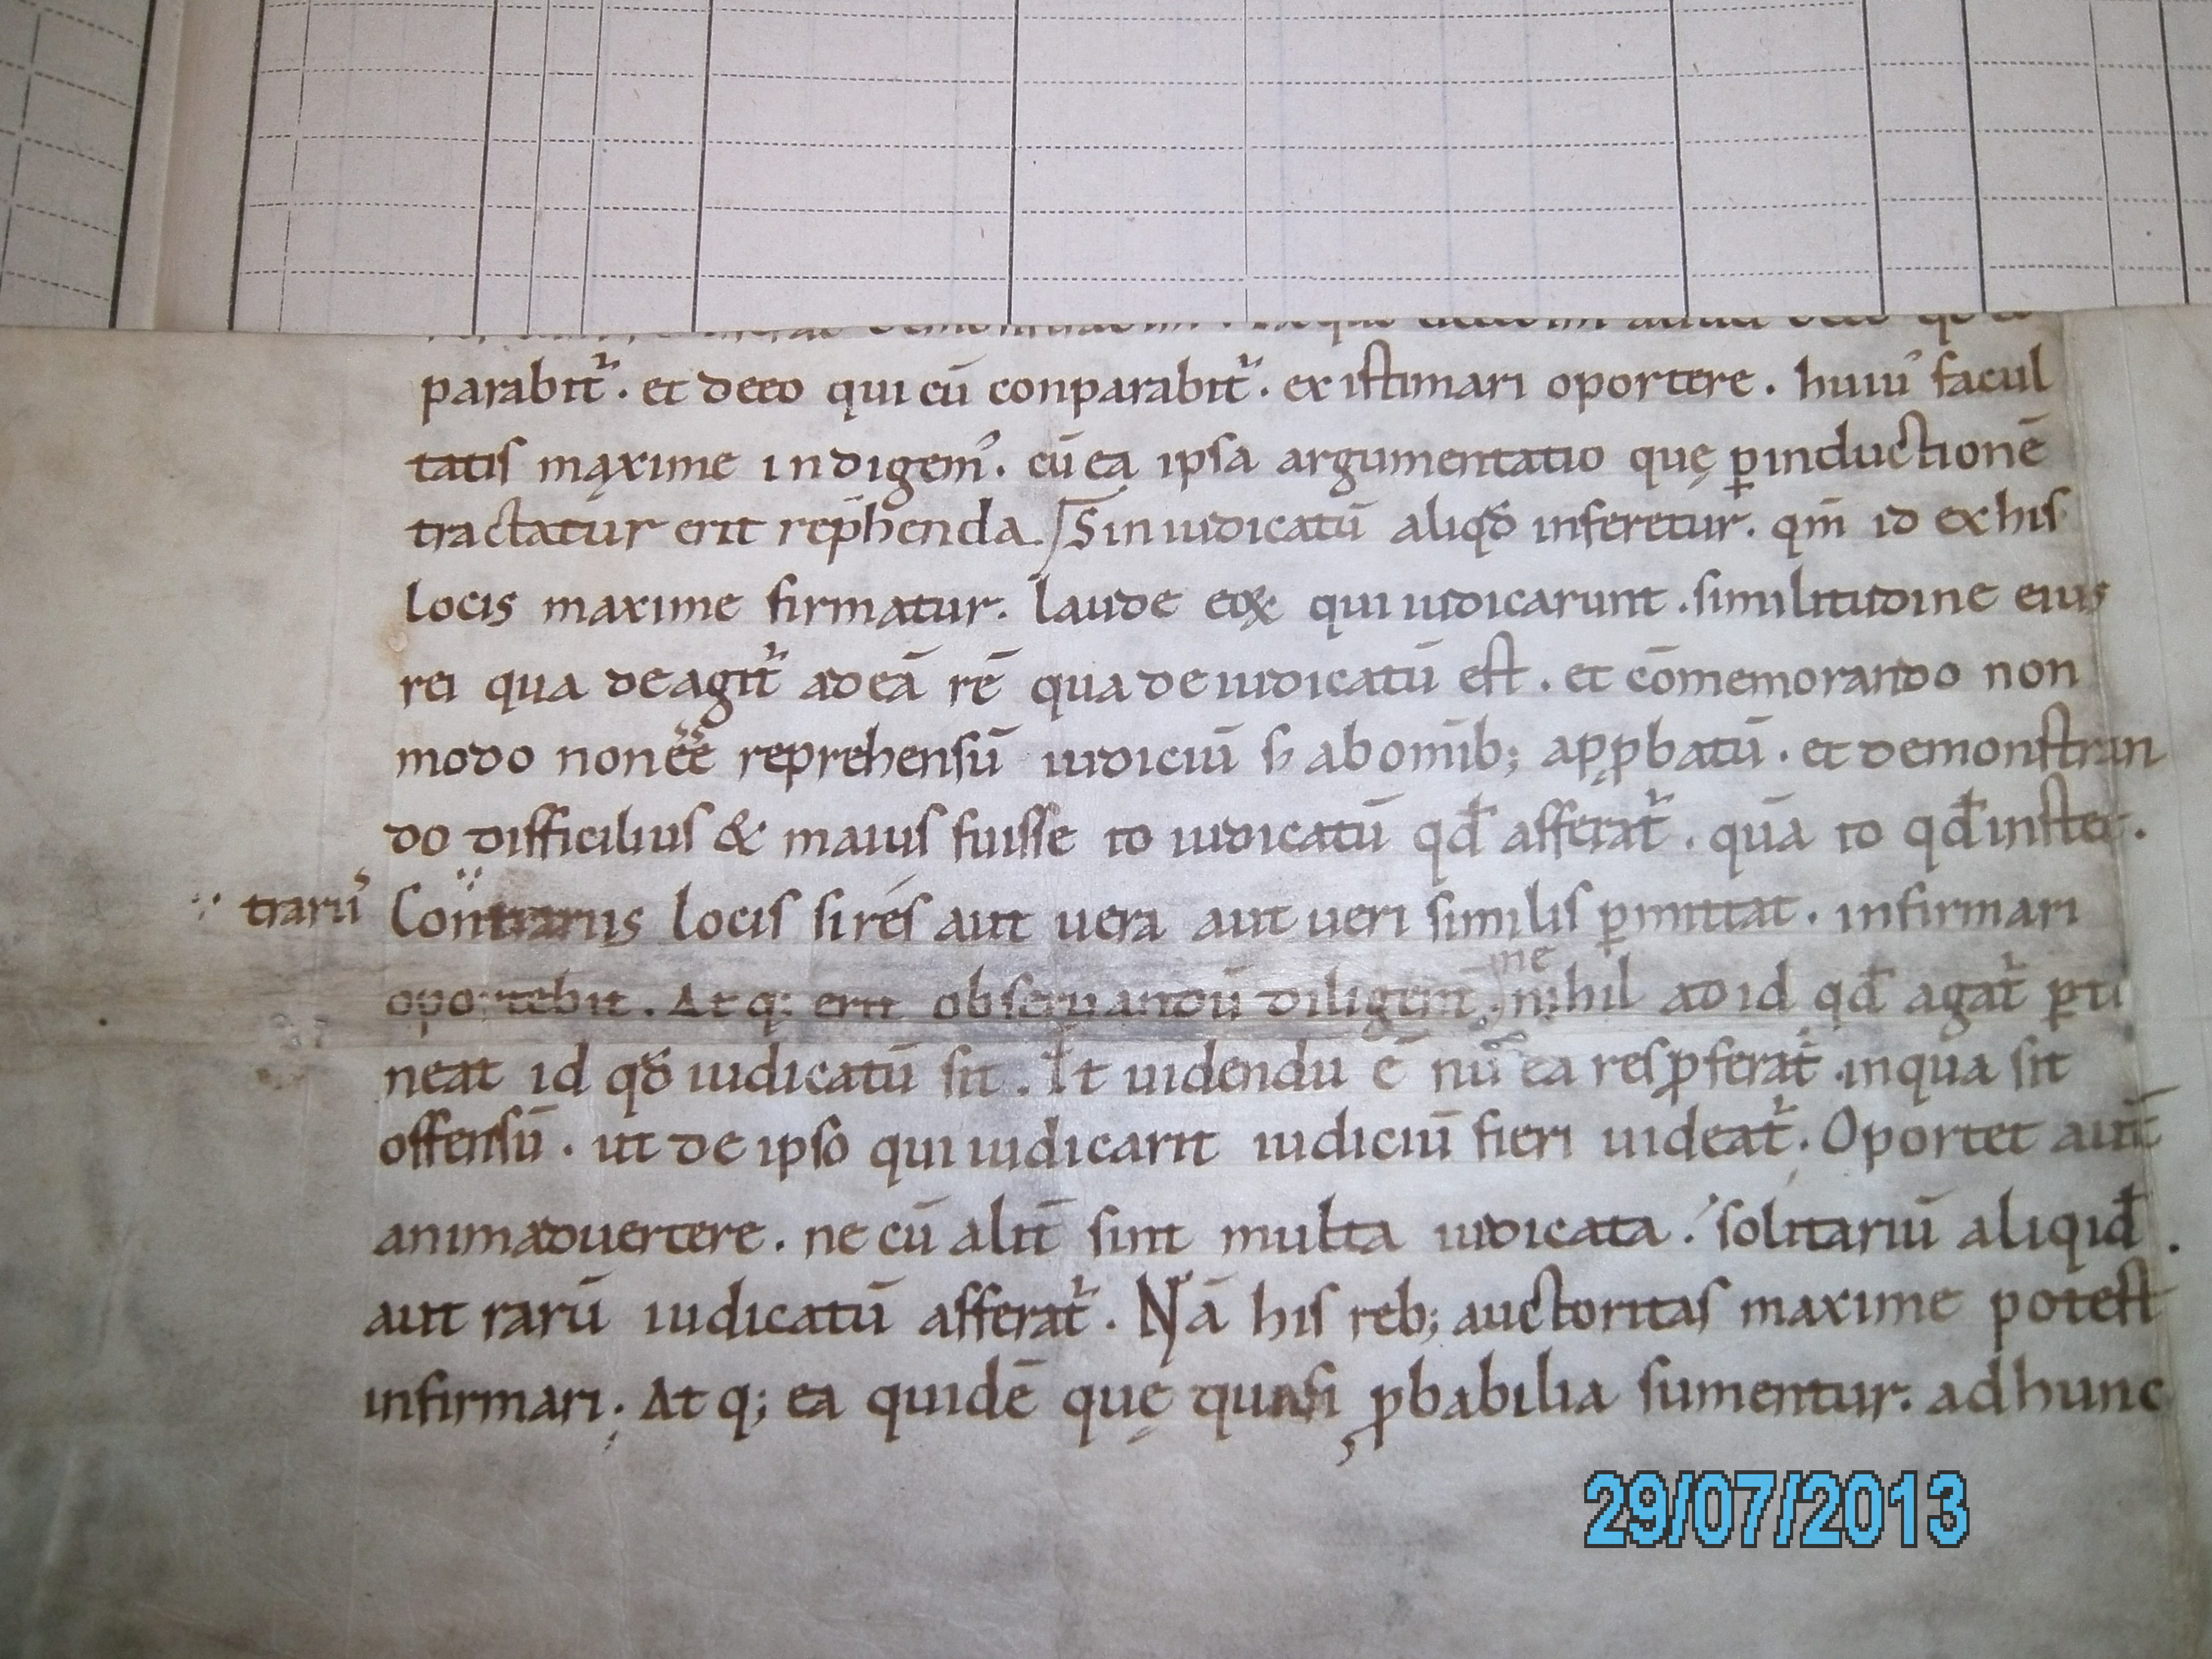 parabit᷑. et deeo qui cū conparabit᷑. existimari oportere. huiuʼ facul
tatis mąxime indigemʼ. cū eą ipsa argumentatio quę ꝑinductionē
tractatur erit rep̄henda. Siniudicatū aliqđ inferetur. qm̄ id exhis
locis maxime firmatur. laude eoꝝ qui iudicarunt. similitudine eius
rei qua deagit᷑ adeā rē qua deiudicatū est. et cōmemorando non
modo nonēē reprehensū iudiciū sꝫ abomīb; apꝓbatū. et demonstran
do difficilius & maius fuisse to iudicatū qđ afferat᷑. quā to qđ instet.
trariiʼ
Contrariis locis sirés aut uera aut ueri similis ꝑmittat. infirmari
ne
oportebit. Atq; erit obseruandū diligent̄ nihil adid qđ agat᷑ ꝑti
neat id qđ iudicatū sit. Et uidendu ē nū ea res ꝓferat᷑. inqua sit
offensū. ut de ipso qui iudicarit iudiciū fieri uideat᷑. Oportet aut̄
animaduertere. ne cū alit̄ sint multa iudicata. solitariū aliqid
aut rarū iudicatū afferat᷑. Nā his reb; auctoritas maxime potest
infirmari. Atq; ea quidē quę quasi ꝓbabilia sumentur. adhunc
29/07/2013